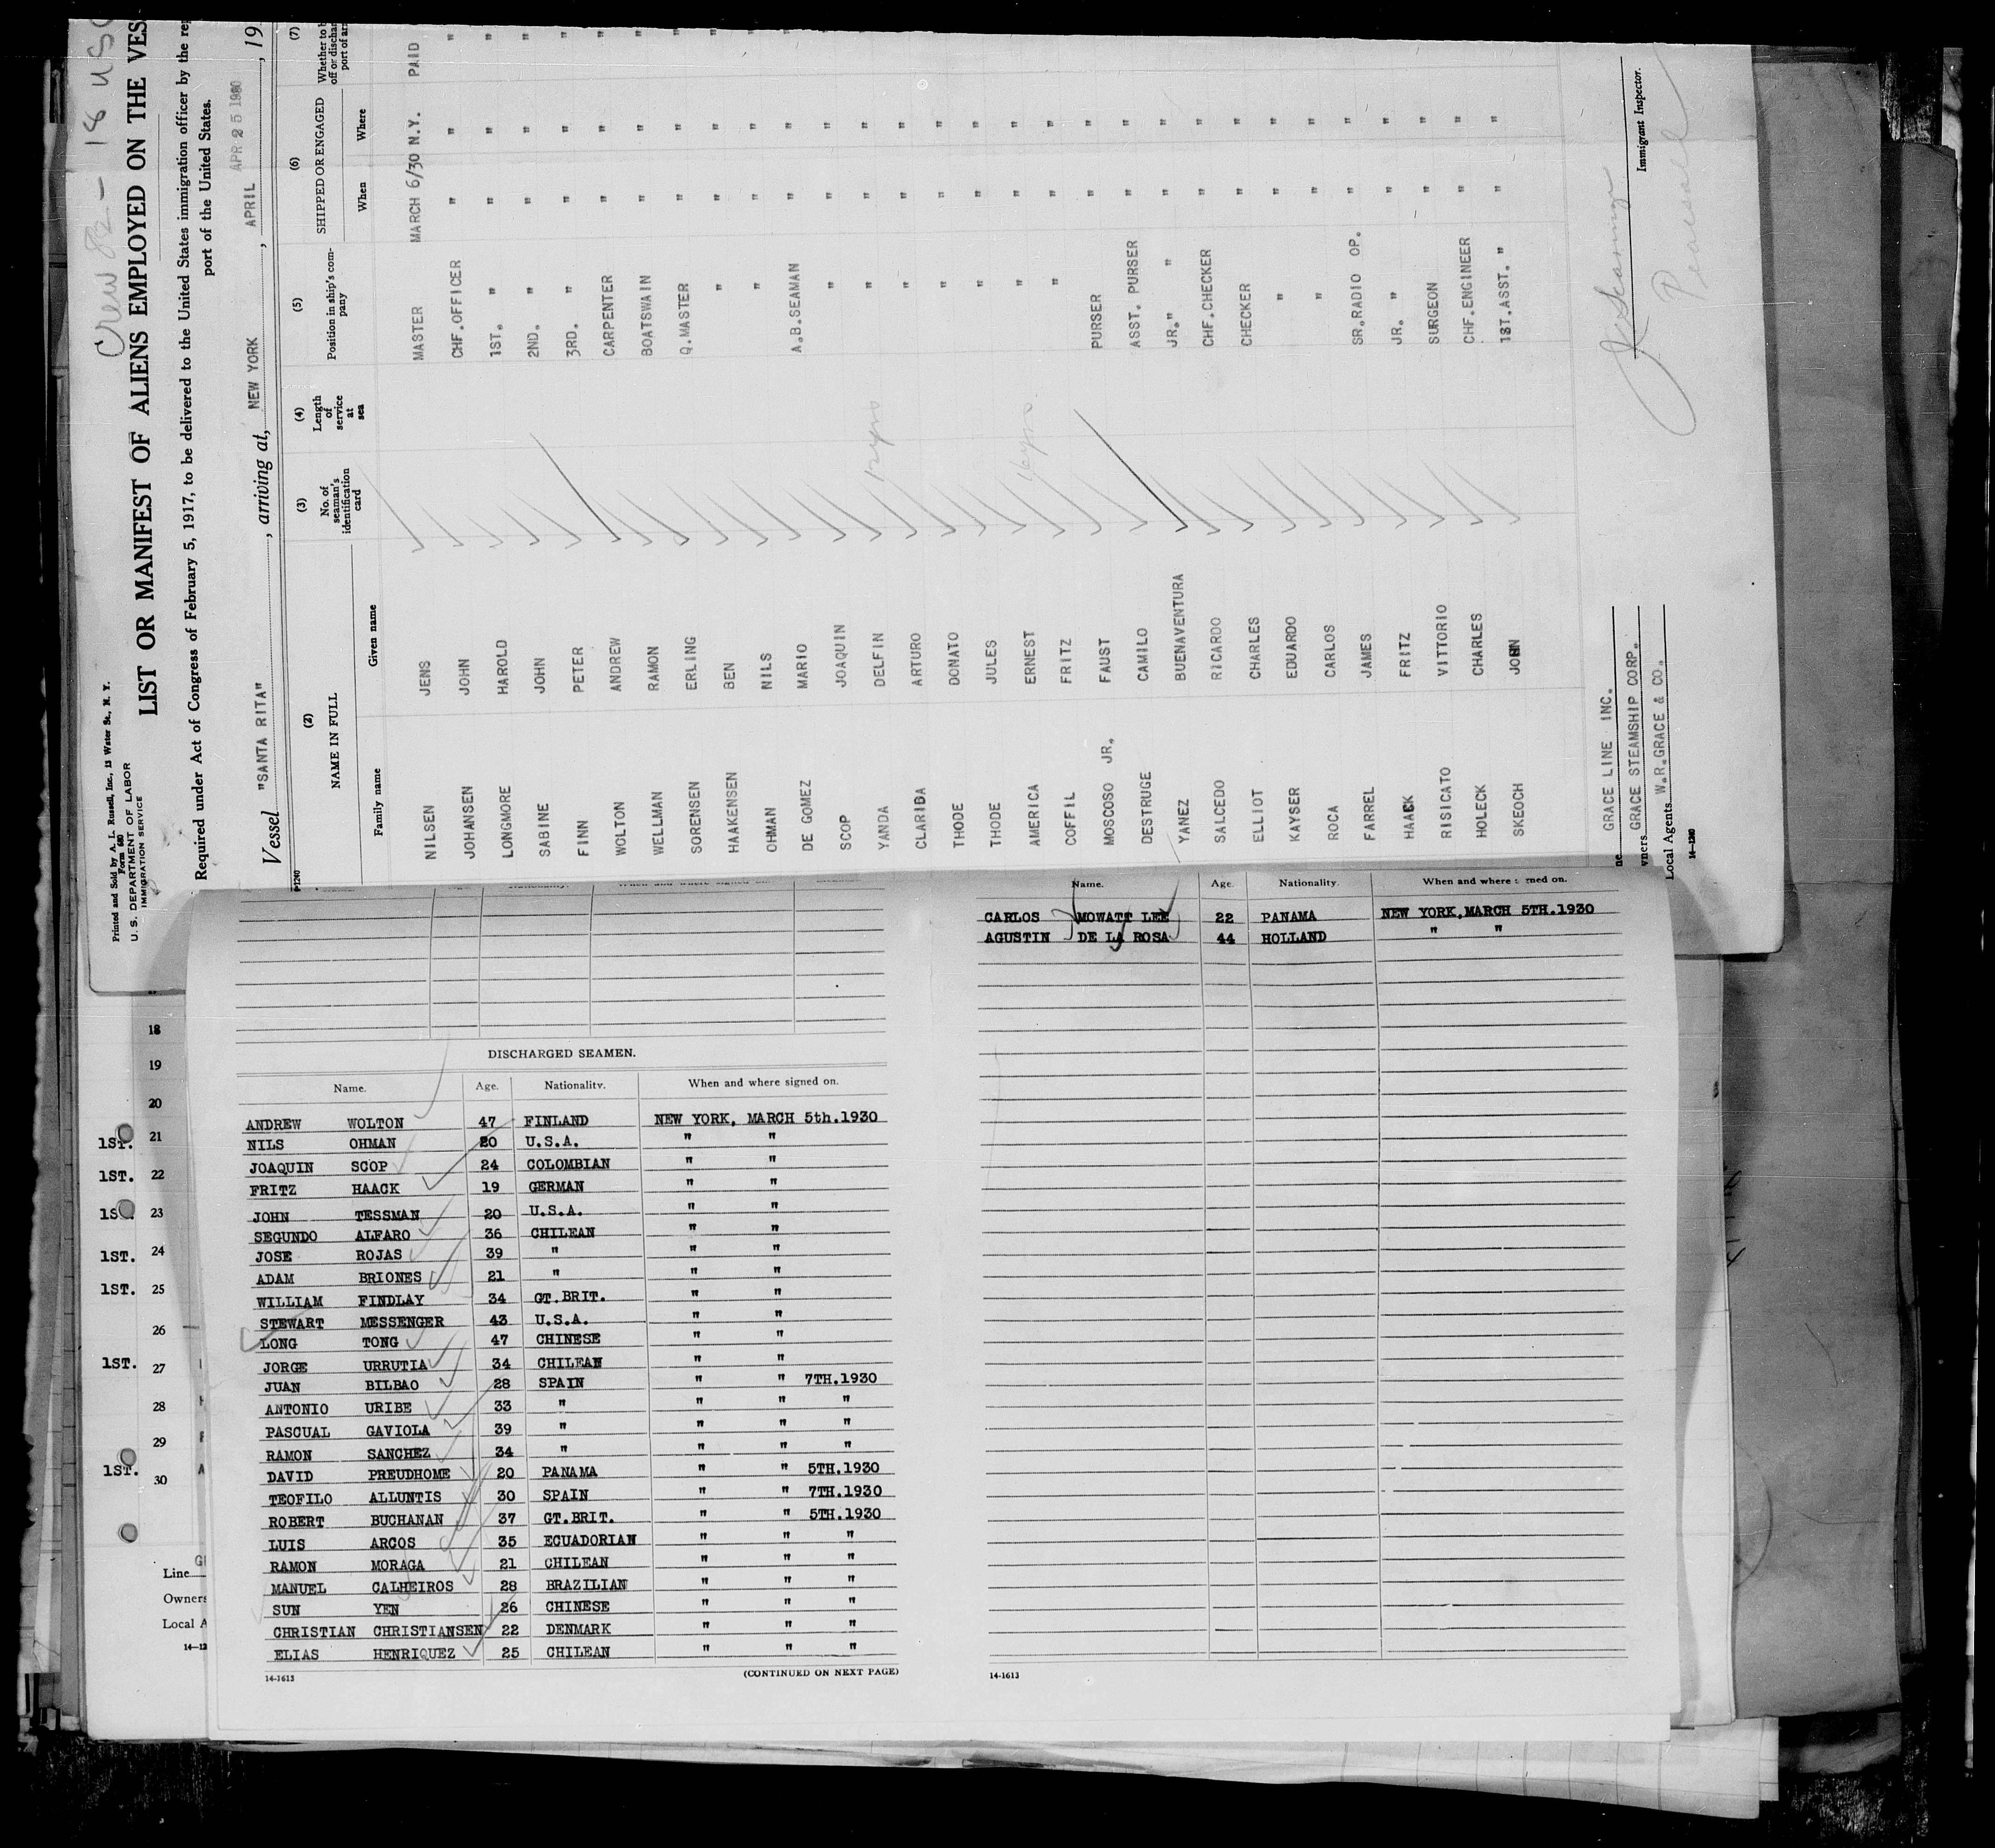 Crew 82 - 18 USC
Printed and Sold by A. L. Russell, Inc., 13 Water St., N. Y.
Form 680
U. S. DEPARTMENT OF LABOR
IMMIGRATION SERVICE
LIST OR MANIFEST OF ALIENS EMPLOYED ON THE VES
Required under Act of Congress of February 5, 1917, to be delivered to the United States immigration officer by the rep
port of the United States.
Vessel "SANTA RITA", arriving at, NEW YORK, APRIL APR 25 1930, 19
(2) (3) (4) (5) (6) (7)
NAME IN FULL No. of seaman's identification card Length of service at sea Position in ship's company SHIPPED OR ENGAGED Whether to off or dischar port of arr
Family name Given name When Where
NILSEN JENS MASTER MARCH 6/30 N.Y. PAID
JOHANSEN JOHN CHF.OFFICER " " "
LONGMORE HAROLD 1ST. " " " "
SABINE JOHN 2ND. " " " "
FINN PETER 3RD. " " " "
WOLTON ANDREW CARPENTER " " "
WELLMAN RAMON BOATSWAIN " " "
SORENSEN ERLING Q.MASTER " " "
HAAKENSEN BEN " " " "
OHMAN NILS " " " "
DE GOMEZ MARIO A.B.SEAMAN " " "
SCOP JOAQUIN " " " "
YANDA DELFIN 12yrs " " " "
CLARIBA ARTURO " " " "
THODE DONATO " " " "
THODE JULES " " " "
AMERICA ERNEST 16yrs " " " "
COFFIL FRITZ " " " "
MOSCOSO JR. FAUST PURSER " " "
DESTRUGE CAMILO ASST. PURSER " " "
YANEZ BUENAVENTURA JR." " " " "
SALCEDO RICARDO CHF.CHECKER " " "
ELLIOT CHARLES CHECKER " " "
KAYSER EDUARDO " " " "
ROCA CARLOS " " " "
FARREL JAMES SR.RADIO OP. " " "
HAACK FRITZ JR. " " " "
RISICATO VITTORIO SURGEON " " "
HOLECK CHARLES CHF.ENGINEER " " "
SKEOCH JOHN 1ST.ASST. " " "
ne GRACE LINE INC.
wners GRACE STEAMSHIP CORP.
Local Agents W.R.GRACE & CO.
14-1240
Immigrant Inspector.
DISCHARGED SEAMEN.
Name. Age. Nationality. When and where signed on.
ANDREW WOLTON 47 FINLAND NEW YORK, MARCH 5th.1930
NILS OHMAN 20 U.S.A. " "
JOAQUIN SCOP 24 COLOMBIAN " "
FRITZ HAACK 19 GERMAN " "
JOHN TESSMAN 20 U.S.A. " "
SEGUNDO ALFARO 36 CHILEAN " "
JOSE ROJAS 39 " " "
ADAM BRIONES 21 " " "
WILLIAM FINDLAY 34 GT.BRIT. " "
STEWART MESSENGER 43 U.S.A. " "
LONG TONG 47 CHINESE " "
JORGE URRUTIA 34 CHILEAN " "
JUAN BILBAO 28 SPAIN " " 7TH.1930
ANTONIO URIBE 33 " " " "
PASCUAL GAVIOLA 39 " " " "
RAMON SANCHEZ 34 " " " "
DAVID PREUDHOME 20 PANAMA " " 5TH.1930
TEOFILO ALLUNTIS 30 SPAIN " " 7TH.1930
ROBERT BUCHANAN 37 GT.BRIT. " " 5TH.1930
LUIS ARCOS 35 ECUADORIAN " " "
RAMON MORAGA 21 CHILEAN " " "
MANUEL CALHEIROS 28 BRAZILIAN " " "
SUN YEN 26 CHINESE " " "
CHRISTIAN CHRISTIANSEN 22 DENMARK " " "
ELIAS HENRIQUEZ 25 CHILEAN " " "
14-1613 (CONTINUED ON NEXT PAGE)
Name. Age. Nationality. When and where signed on.
CARLOS MOWATT LEE 22 PANAMA NEW YORK,MARCH 5TH.1930
AGUSTIN DE LA ROSA 44 HOLLAND " "
14-1613
18
19
20
1ST. 21
1ST. 22
1ST. 23
1ST. 24
1ST. 25
26
1ST. 27
28
29
1ST. 30
Line
Owners
Local A
14-12